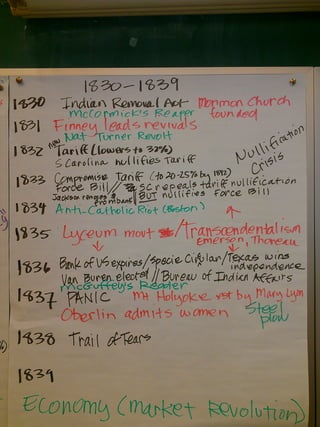 1830-1839
1830 Indian Removal Act Mormon Church founded
McCormick's Reaper
1831 Finney leads revivals
Nat Turner Revolt
1832 new Tariff (lowers to 32%)
S Carolina nullifies Tariff
Nullification Crisis
1833 Compromise Tariff (to 20-25% by 1842)
Force Bill // SC repeals tariff nullification
Jackson removes BUT nullifies Force Bill
1834 Anti-Catholic Riot (Boston)
1835 Lyceum movt / Transcendentalism
Emerson, Thoreau
1836 Bank of US expires/Specie Circular/Texas wins independence
Van Buren elected // Bureau of Indian Affairs
McGuffey's Reader
1837 PANIC Mt Holyoke by Mary Lyon
Oberlin admits women Steel plow
1838 Trail of Tears
1839
Economy (market Revolution)